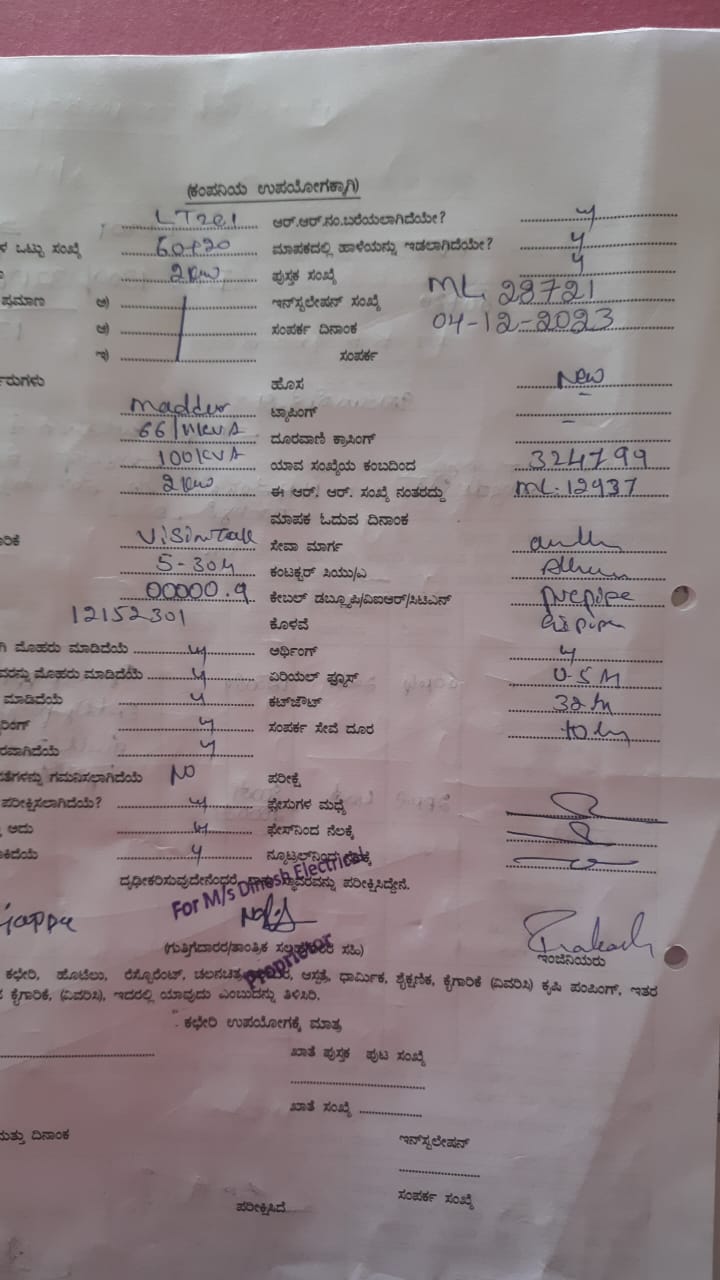 (ಕಂಪನಿಯ ಉಪಯೋಗಕ್ಕಾಗಿ)
ಆರ್.ಆರ್.ನಂ.ಬರೆಯಲಾಗಿದೆಯೇ? y
ಳ ಒಟ್ಟು ಸಂಖ್ಯೆ ಮಾಪಕದಲ್ಲಿ ಹಾಳೆಯನ್ನು ಇಡಲಾಗಿದೆಯೇ? y
2KW ಪುಸ್ತಕ ಸಂಖ್ಯೆ y
ಪ್ರಮಾಣ ಅ) ಇನ್‌ಸ್ಟಲೇಷನ್ ಸಂಖ್ಯೆ ML 28721
ಆ) ಸಂಪರ್ಕ ದಿನಾಂಕ 04-12-2023
ಇ) ಸಂಪರ್ಕ
ಹೊಸ New
Maddur ಟ್ಯಾಪಿಂಗ್ –
66/11KVA ದೂರವಾಣಿ ಕ್ರಾಸಿಂಗ್
100KVA ಯಾವ ಸಂಖ್ಯೆಯ ಕಂಬದಿಂದ 324799
2KW ಈ ಆರ್. ಆರ್. ಸಂಖ್ಯೆ ನಂತರದ್ದು ML-12937
ಮಾಪಕ ಓದುವ ದಿನಾಂಕ
VisionTek ಸೇವಾ ಮಾರ್ಗ
5-30A ಕಂಟಕ್ಟರ್ ಸಿಯು/ಎ
00000.9 ಕೇಬಲ್ ಡಬ್ಲ್ಯೂಪಿ/ವಿಐಆರ್/ಸಿಟಿಎನ್
12152301 ಕೊಳವೆ
ಗಿ ಮೊಹರು ಮಾಡಿದೆಯೆ y ಅರ್ಥಿಂಗ್ y
ವರನ್ನು ಮೊಹರು ಮಾಡಿದೆಯೆ y ಏರಿಯಲ್ ಫ್ಯೂಸ್ 0-5M
ಮಾಡಿದೆಯೆ y ಕಟ್‌ಜೌಟ್
ರಿಂಗ್ y ಸಂಪರ್ಕ ಸೇವೆ ದೂರ
ರವಾಗಿದೆಯೆ y
ತೆಗಳನ್ನು ಗಮನಿಸಲಾಗಿದೆಯೆ NO ಪರೀಕ್ಷೆ
ಪರೀಕ್ಷಿಸಲಾಗಿದೆಯೆ? y ಫ್ಹೇಸುಗಳ ಮಧ್ಯೆ
ಅದು y ಫೇಸ್‌ನಿಂದ ನೆಲಕ್ಕೆ
ಾಕಿದೆಯೆ y ನ್ಯೂಟ್ರಲ್‌ನಿಂದ
ದೃಢೀಕರಿಸುವುದೇನೆಂದರೆ, ಸ್ಥಾವರವನ್ನು ಪರೀಕ್ಷಿಸಿದ್ದೇನೆ.
For M/s Dinesh Electrical
Proprietor
Prakash
(ಗುತ್ತಿಗೆದಾರರ/ತಾಂತ್ರಿಕ ಸಹಿ) ಇಂಜಿನಿಯರು
ಕಛೇರಿ, ಹೊಟೆಲು, ರೆಸ್ಟೊರೆಂಟ್, ಆಸ್ಪತ್ರೆ, ಧಾರ್ಮಿಕ, ಶೈಕ್ಷಣಿಕ, ಕೈಗಾರಿಕೆ (ವಿವರಿಸಿ) ಕೃಷಿ ಪಂಪಿಂಗ್, ಇತರ
ಕೈಗಾರಿಕೆ, (ವಿವರಿಸಿ), ಇದರಲ್ಲಿ ಯಾವುದು ಎಂಬುದನ್ನು ತಿಳಿಸಿರಿ.
ಕಛೇರಿ ಉಪಯೋಗಕ್ಕೆ ಮಾತ್ರ
ಖಾತೆ ಪುಸ್ತಕ ಪುಟ ಸಂಖ್ಯೆ
ಖಾತೆ ಸಂಖ್ಯೆ
ಮತ್ತು ದಿನಾಂಕ ಇನ್‌ಸ್ಟಲೇಷನ್
ಸಂಪರ್ಕ ಸಂಖ್ಯೆ
ಪರೀಕ್ಷಿಸಿದೆ